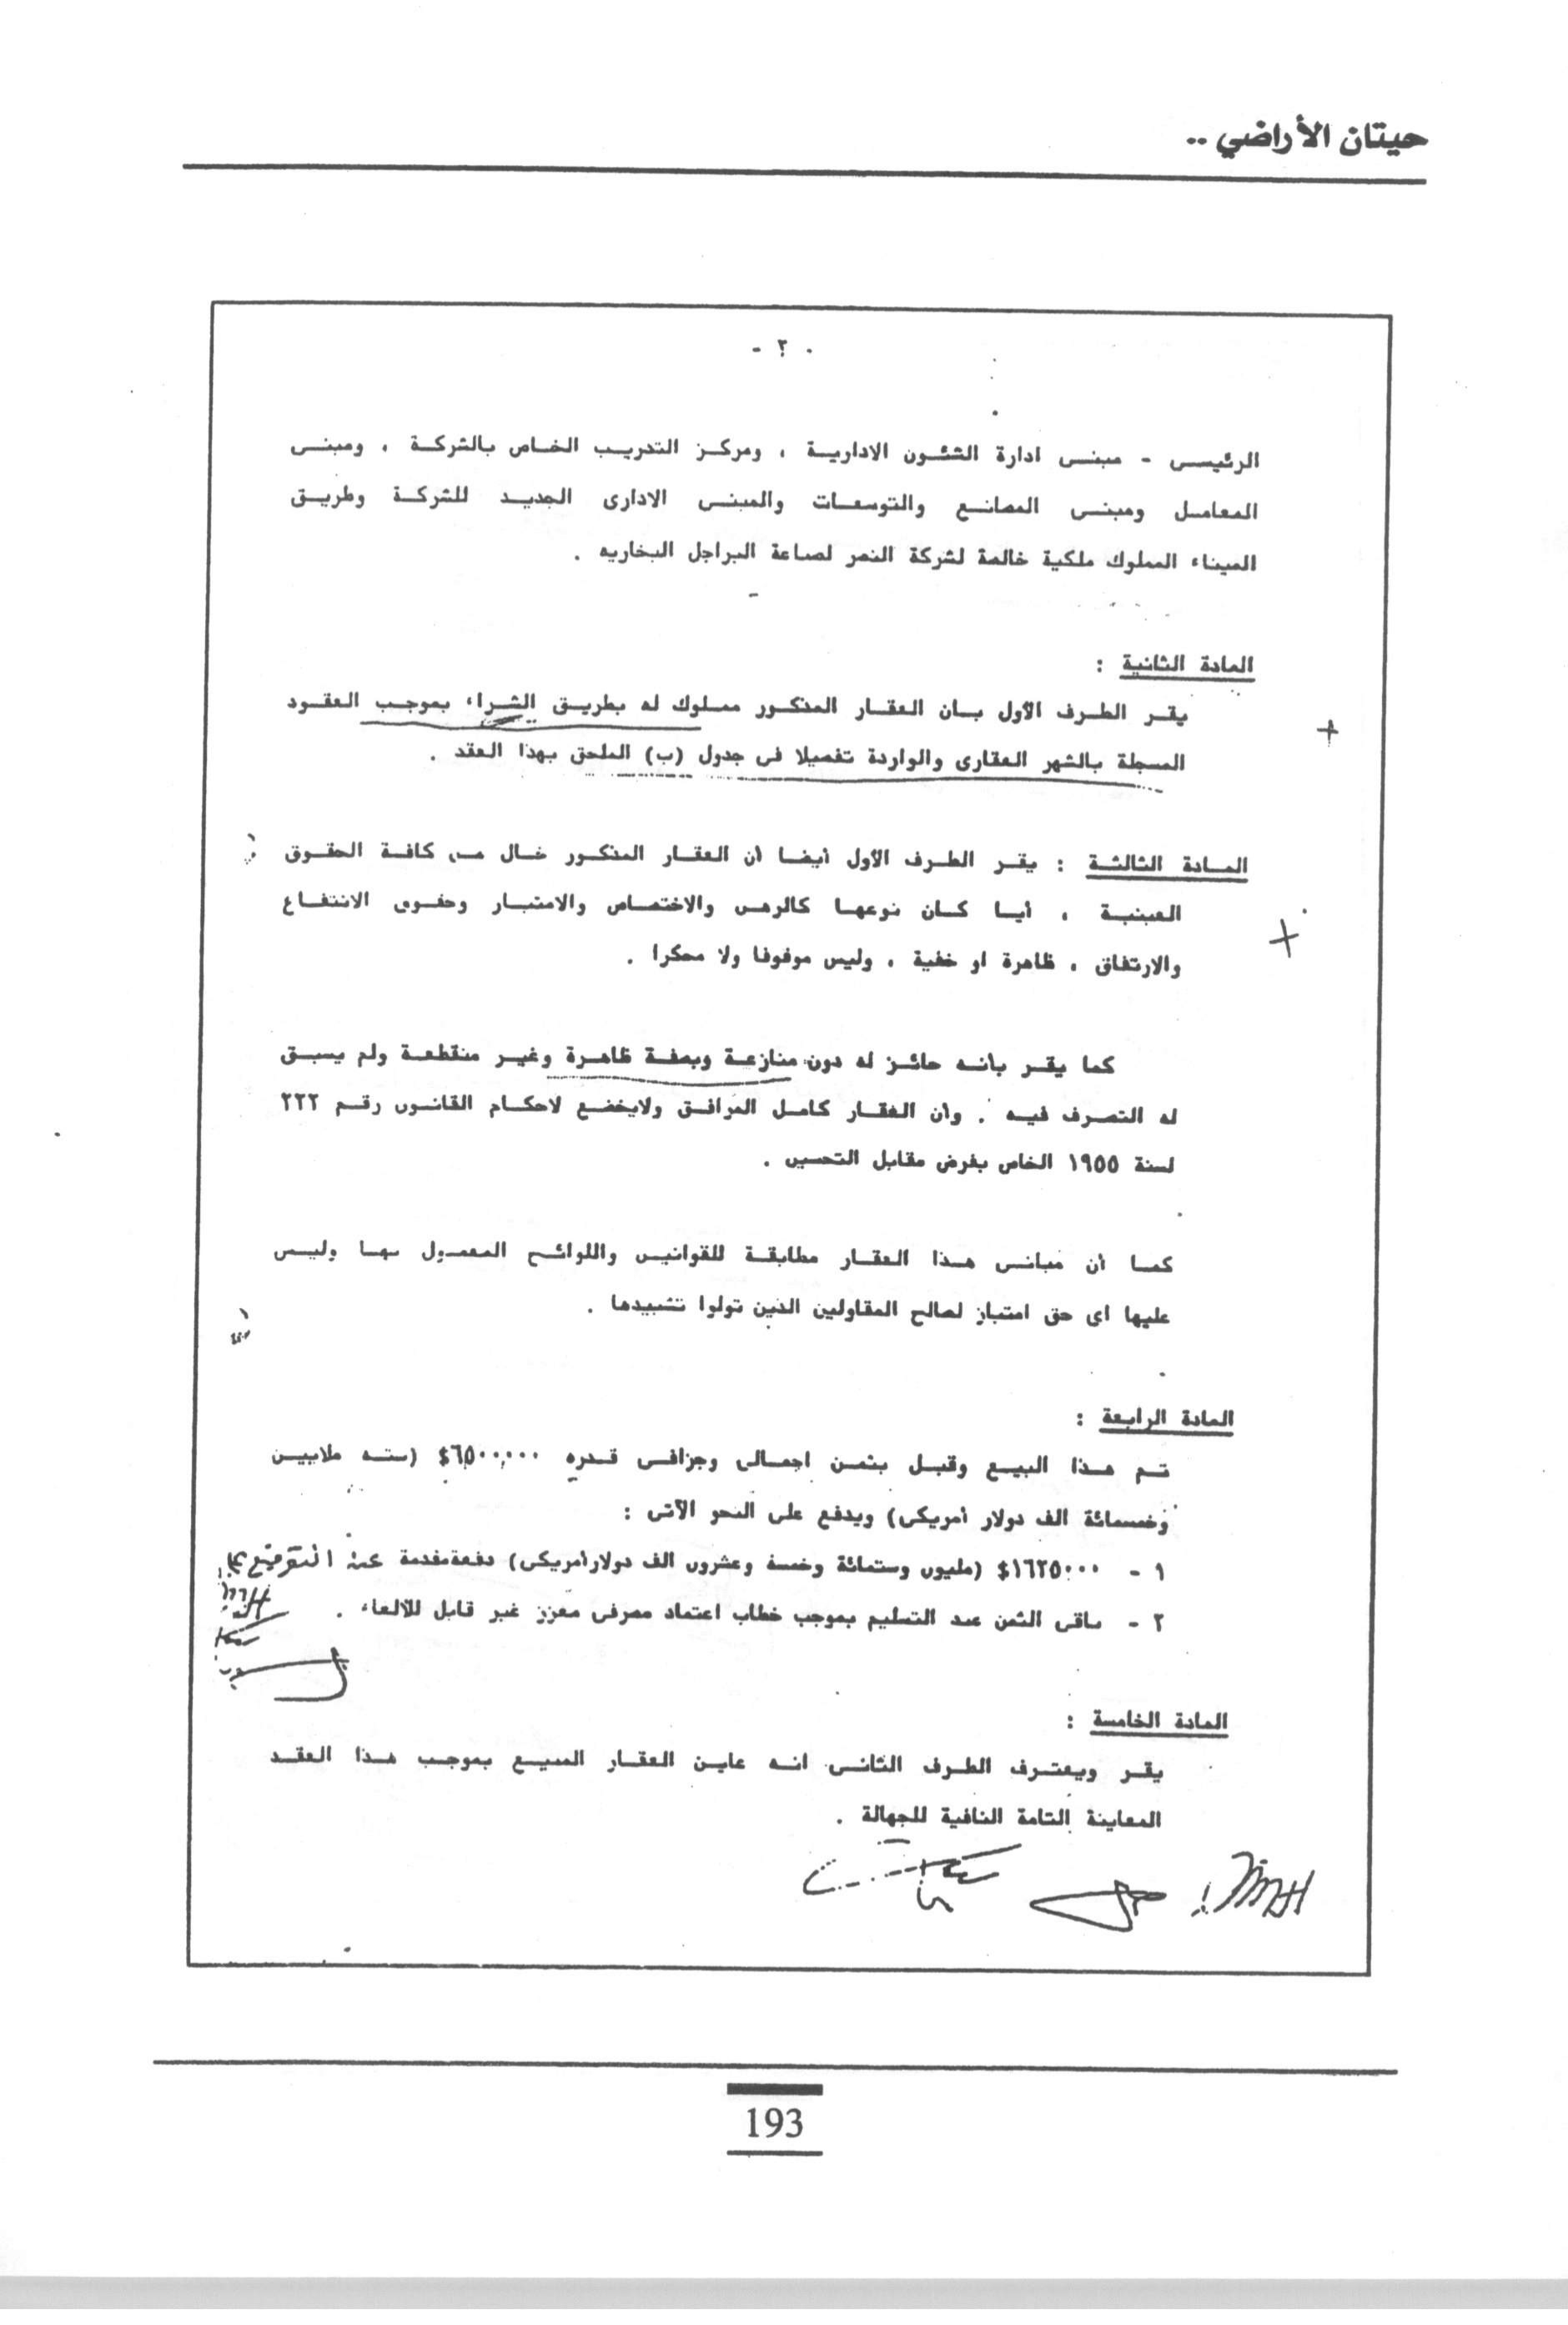 حيتان الأراضي ..
- ٢ -
الرئيسى - مبنى ادارة الشئون الادارية ، ومركز التدريب الخاص بالشركة ، ومبنى
المعامل ومبنى المصانع والتوسعات والمبنى الادارى الجديد للشركة وطريق
الميناء المملوك ملكية خالصة لشركة النصر لصناعة المراجل البخاريه .
المادة الثانية :
يقر الطرف الأول بان العقار المذكور مملوك له بطريق الشراء بموجب العقود
المسجلة بالشهر العقارى والواردة تفصيلا فى جدول (ب) الملحق بهذا العقد .
المادة الثالثة : يقر الطرف الأول أيضا أن العقار المذكور خال من كافة الحقوق
العينية ، أيا كان نوعها كالرهن والاختصاص والامتياز وحقوق الانتفاع
والارتفاق ، ظاهرة او خفية ، وليس موقوفا ولا محكرا .
كما يقر بأنه حائز له دون منازعة وبصفة ظاهرة وغير منقطعة ولم يسبق
له التصرف فيه . وأن العقار كامل المرافق ولايخضع لاحكام القانون رقم ٢٢٢
لسنة ١٩٥٥ الخاص بفرض مقابل التحسين .
كما أن مبانى هذا العقار مطابقة للقوانين واللوائح المعمول بها وليس
عليها اى حق امتياز لصالح المقاولين الذين تولوا تشييدها .
المادة الرابعة :
تم هذا البيع وقبل بثمن اجمالى وجزافى قدره ٦٥٠٠,٠٠٠$ (سته ملايين
وخمسمائة الف دولار أمريكى) ويدفع على النحو الآتى :
١ - ١٦٢٥٠٠٠$ (مليون وستمائة وخمسة وعشرون الف دولار أمريكى) دفعة مقدمة عند التوقيع
٢ - باقى الثمن عند التسليم بموجب خطاب اعتماد مصرفى معزز غير قابل للالغاء .
المادة الخامسة :
يقر ويعترف الطرف الثانى انه عاين العقار المبيع بموجب هذا العقد
المعاينة التامة النافية للجهالة .
193